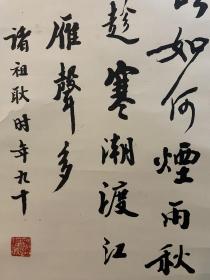 如何煙雨秋
趁寒潮渡江
雁聲多
諸祖耿时年九十